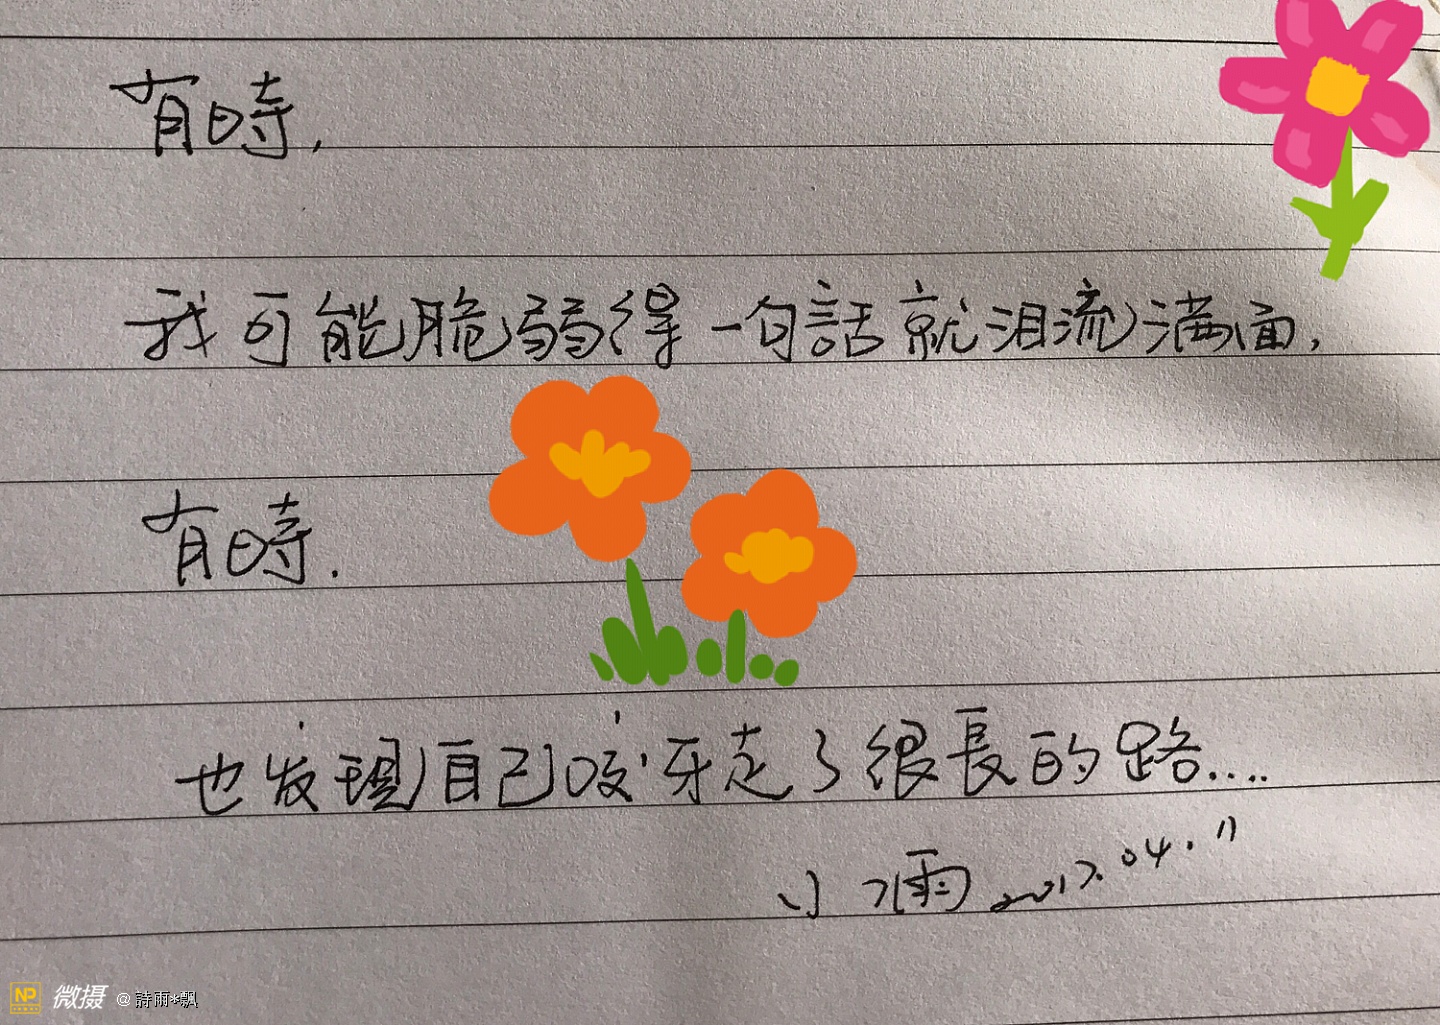 有時,
我可能脆弱得一句話就泪流满面,
有時.
也发現自己咬牙走了很長的路....
小雨 2017.04.11
NP 微摄 @詩雨*飄